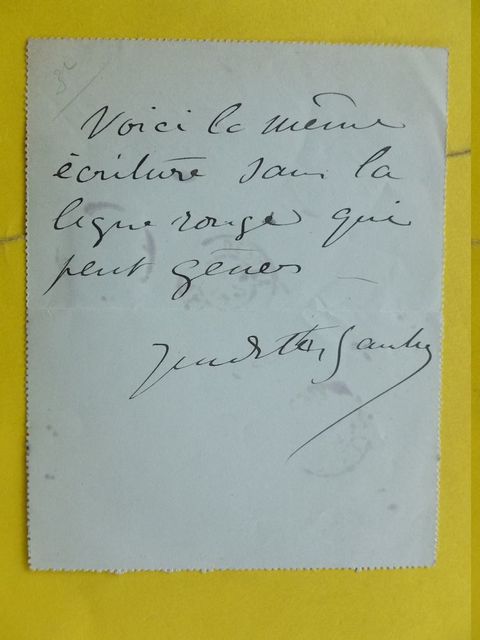 Voici la même
écriture sans la
ligne rouge qui
peut gêner
Judith Gautier